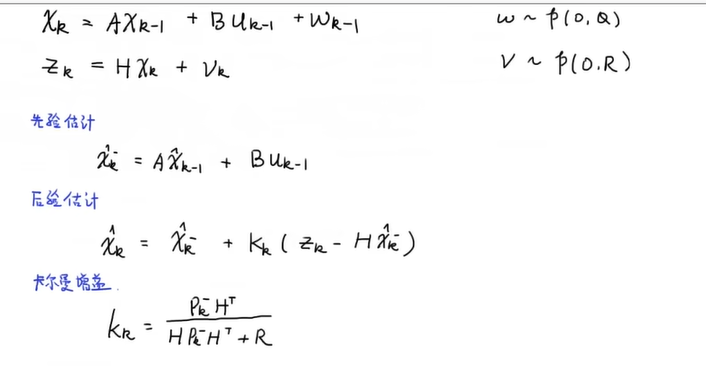 χₖ = Aχₖ₋₁ + Buₖ₋₁ + wₖ₋₁    w ~ p(0,Q)
zₖ = Hχₖ + vₖ    v ~ p(0,R)
先验估计
χ̂ₖ⁻ = Aχ̂ₖ₋₁ + Buₖ₋₁
后验估计
χ̂ₖ = χ̂ₖ⁻ + Kₖ( zₖ - Hχ̂ₖ⁻ )
卡尔曼增益
Kₖ = Pₖ⁻Hᵀ / HPₖ⁻Hᵀ + R